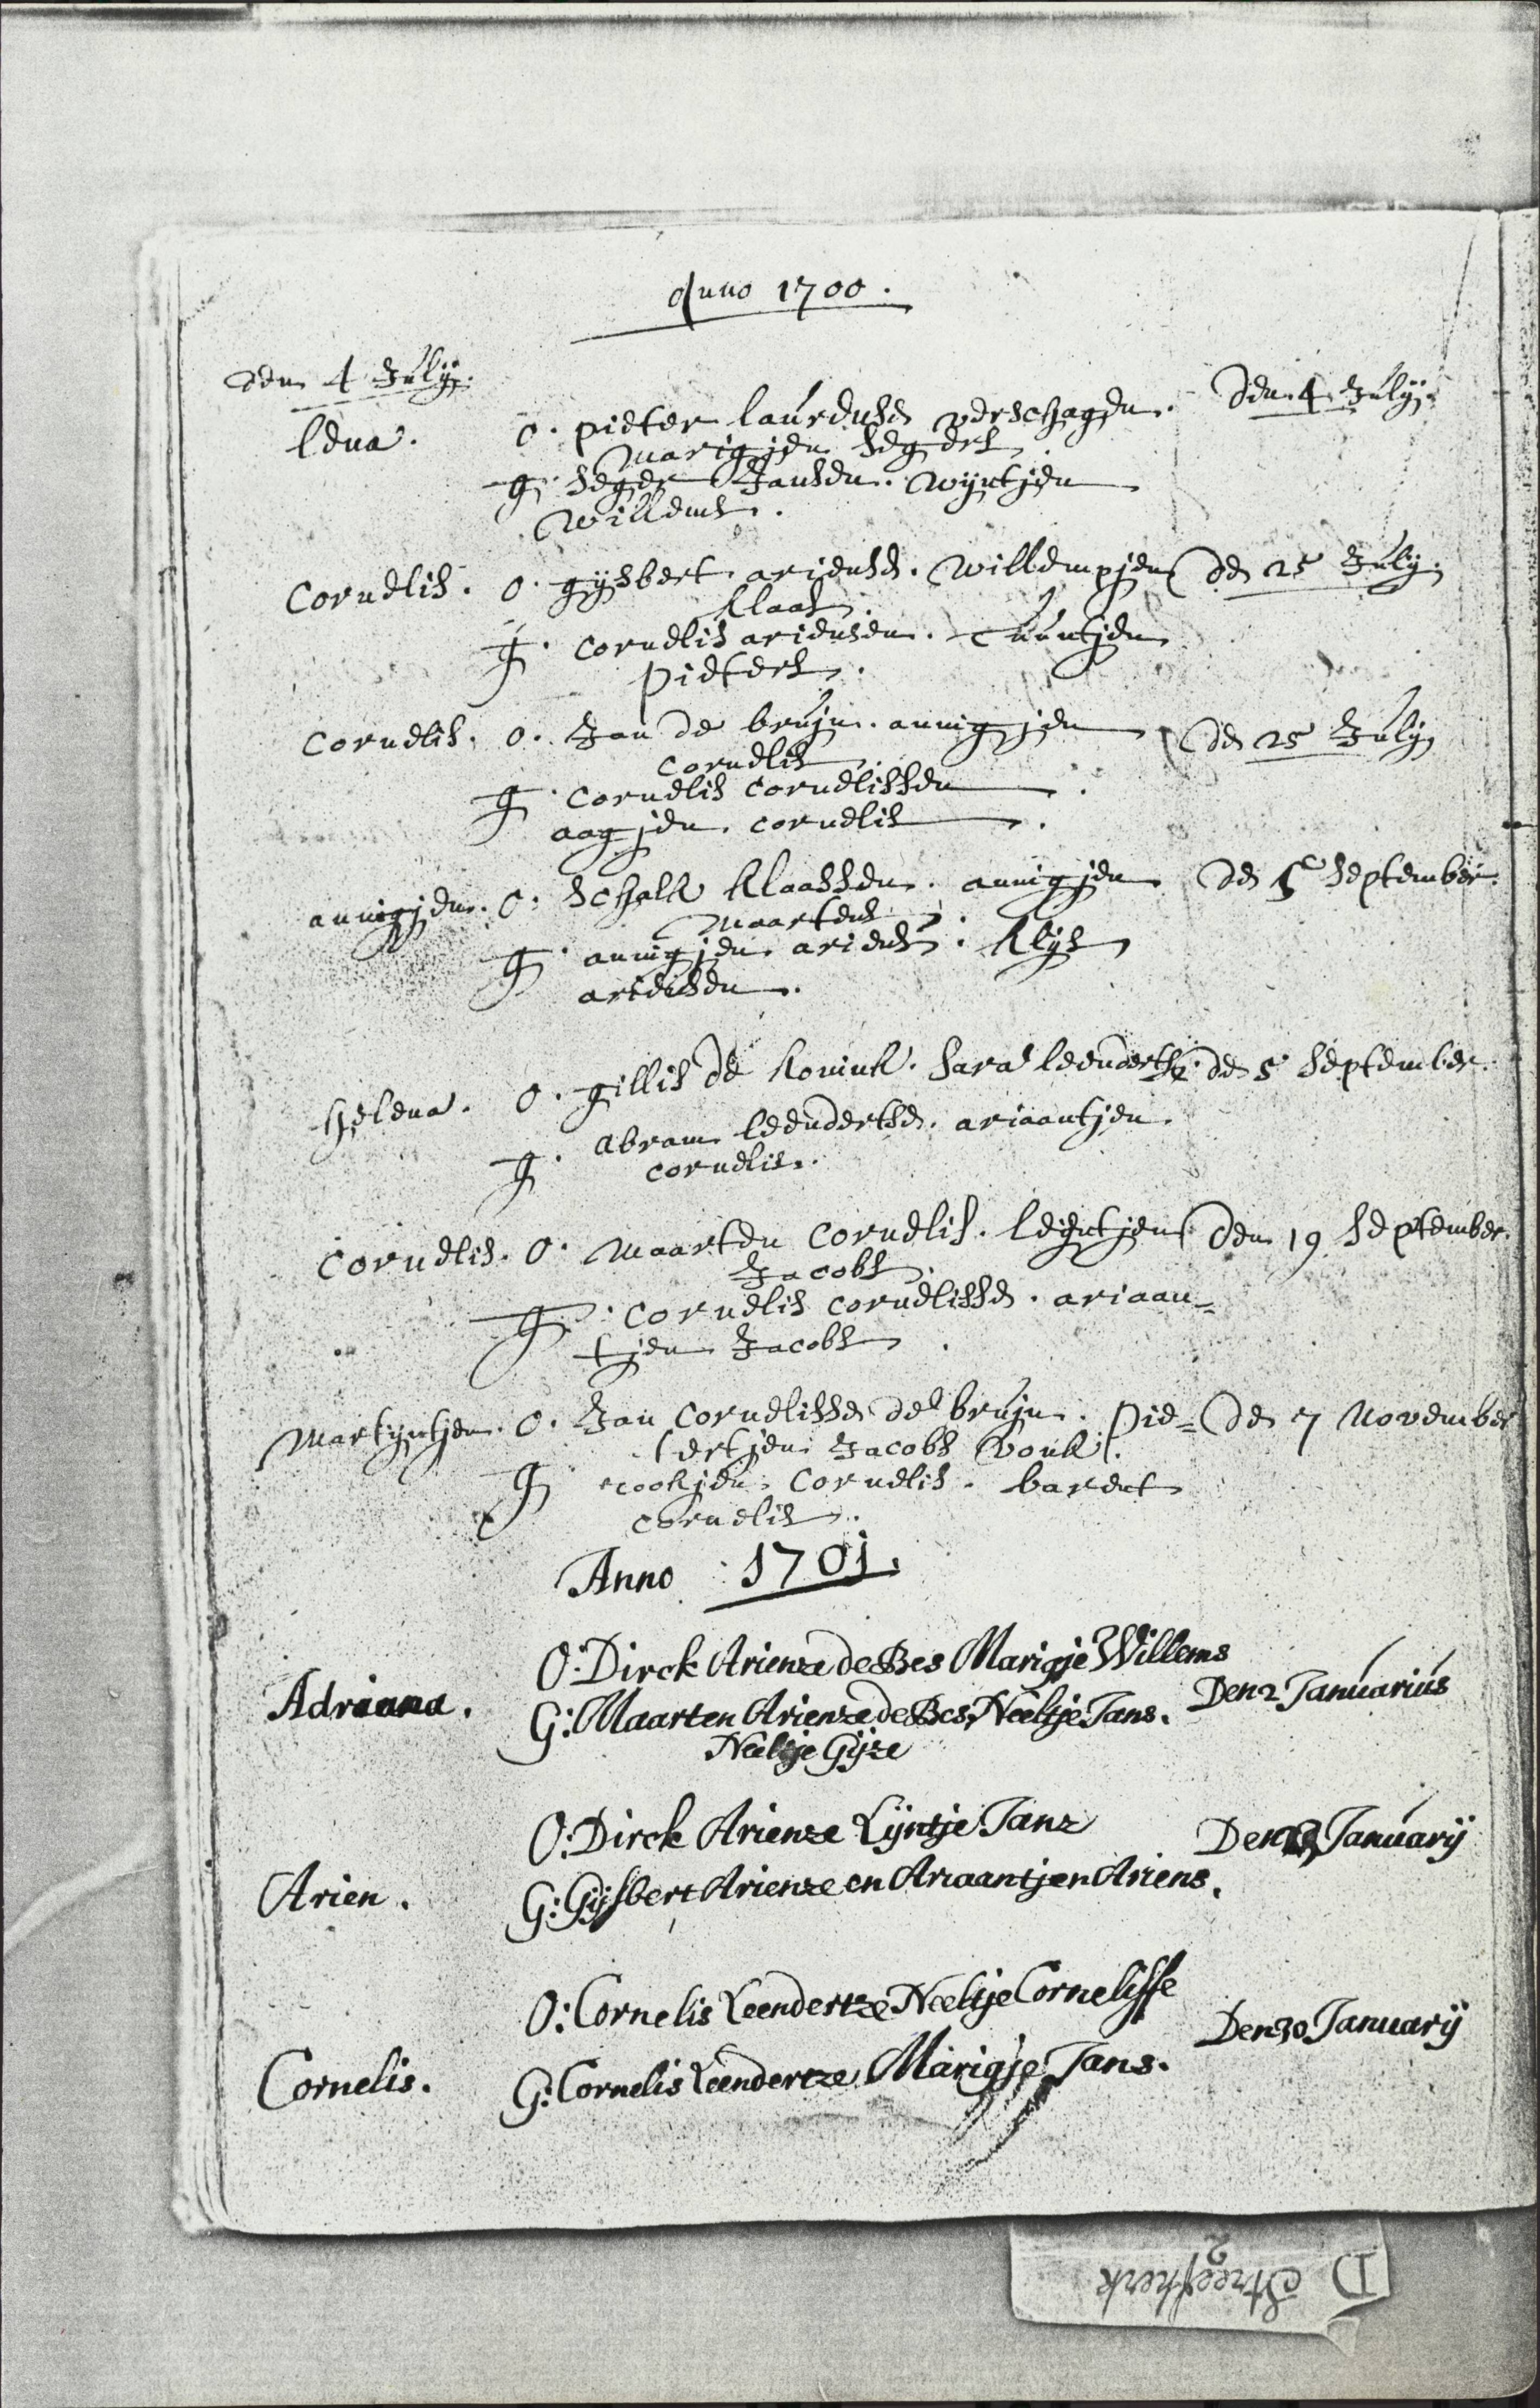 Anno 1700.
den 4 July.
lena. O. pieter laurense verschagen. den 4 July.
Marigjen Segers
G. Seger Jansen. Wijntjen
Willems.
Cornelis. O. gijsbert ariense. Willempjen de 25 July.
Klaas.
G. Cornelis ariensen. Tuuntjen
Pieters.
Cornelis. O. Jan de bruijn. annigjen de 25 July
Cornelis
G. Cornelis Cornelissen.
aagjen. Cornelis.
annigjen. O. Schalk Klaassen. annigjen de 5 September.
Maartens.
G. annigjen ariens. Klijs
ariensen.
helena. O. gillis de Konink. Sara leenderts. de 5 September.
G. Abram leendertse. ariaantjen
Cornelis.
Cornelis. O. Maarten Cornelis. leijntjen den 19 September.
Jacobs.
G. Cornelis Cornelisse. ariaan=
tjen Jacobs.
Martijntjen. O. Jan Cornelisse de bruijn. Pie= de 7 November
tertjen Jacobs Vonk.
G. Cornelis. barent
Cornelis.
Anno 1701.
O: Dirck Arienze de Bes Marigje Willems
Adriana. G: Maarten Arienze de Bes, Neeltje Jans. Den 2 Januarius
Neeltje Gijze
O: Dirck Arienze Lijntje Janz Den Januarij
Arien. G: Gijsbert Arienze en Ariaantjen Ariens.
O: Cornelis Leendertze Neeltje Cornelisse
Cornelis. G: Cornelis Leendertze Marigje Jans. Den 30 Januarij
D Streefkerk
2